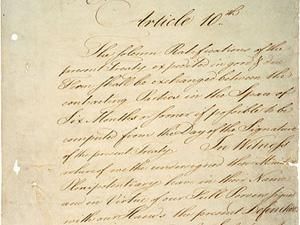 Article 10th
The solemn Ratifications of the
present Treaty expedited in good & due
Form shall be exchanged between the
contracting Parties in the Space of
Six Months or sooner if possible to be
computed from the Day of the Signature
of the present Treaty. In Witness
whereof we the undersigned their Ministers
Plenipotentiary have in their Name
and in Virtue of our Full Powers signed
with our Hands the present Definitive